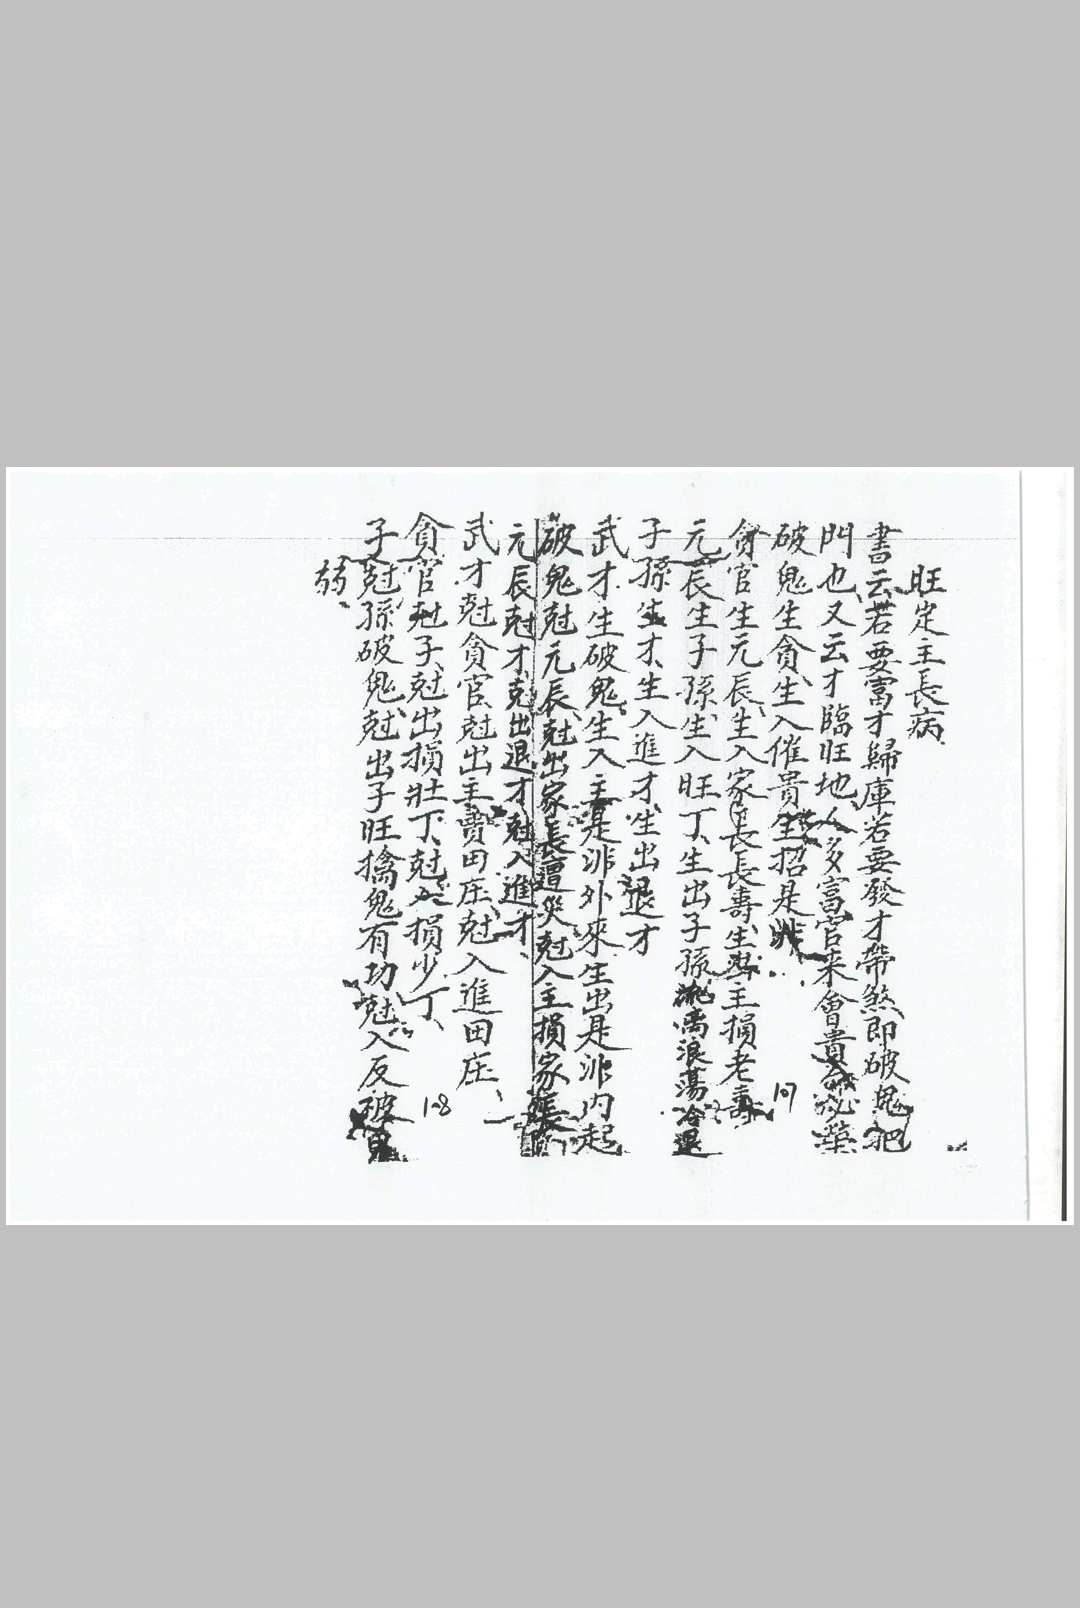 旺定主長病
書云若要富才歸庫若要發才帶煞即破鬼把
門也又云才臨旺地人多富官来會貴
破鬼生貪生入催貴生招是非
貪官生元辰生入家長長壽生出主損老壽
元辰生子孫生入旺丁生出子孫流离浪蕩冷退
子孫生才生入進才生出退才
武才生破鬼生入主是非外來生出是非内起
破鬼尅元辰尅出家長遭災尅入主損家長
元辰尅才尅出退才尅入進才
武才尅貪官尅出主賣田庄尅入進田庄
貪官尅子尅出損壯丁尅入損少丁
子尅孫破鬼尅出子旺擒鬼有功尅入反被鬼
弱
107
108